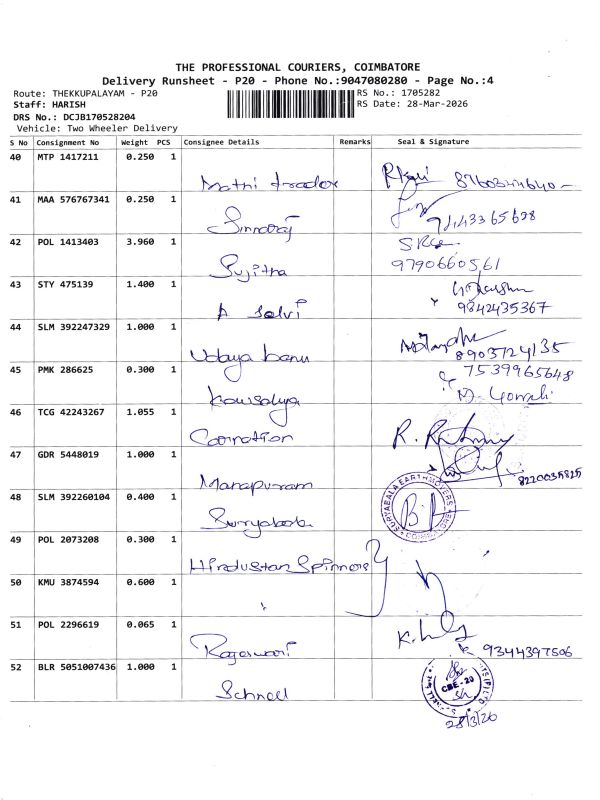 THE PROFESSIONAL COURIERS, COIMBATORE
Delivery Runsheet - P20 - Phone No.:9047080280 - Page No.:4
Route: THEKKUPALAYAM - P20
RS No.: 1705282
Staff: HARISH
RS Date: 28-Mar-2026
DRS No.: DCJB170528204
Vehicle: Two Wheeler Delivery
S No Consignment No Weight PCS Consignee Details Remarks Seal & Signature
40 MTP 1417211 0.250 1
Mathi trador
41 MAA 576767341 0.250 1
Sinnaraj
42 POL 1413403 3.960 1 SRee
Sujitha 9790660561
43 STY 475139 1.400 1
A Selvi 9842435367
44 SLM 392247329 1.000 1
Udaya banu 8903724135
45 PMK 286625 0.300 1 7539965648
Kowsalya
46 TCG 42243267 1.055 1
Coronation
47 GDR 5448019 1.000 1 8220035825
Manapuram
48 SLM 392260104 0.400 1 SURYABALA EARTHMOVERS
Suryabala
49 POL 2073208 0.300 1
Hindustan Spinners
50 KMU 3874594 0.600 1
51 POL 2296619 0.065 1
Rajeswari 9344397506
52 BLR 5051007436 1.000 1 CBE-20
Schnell
28/3/26